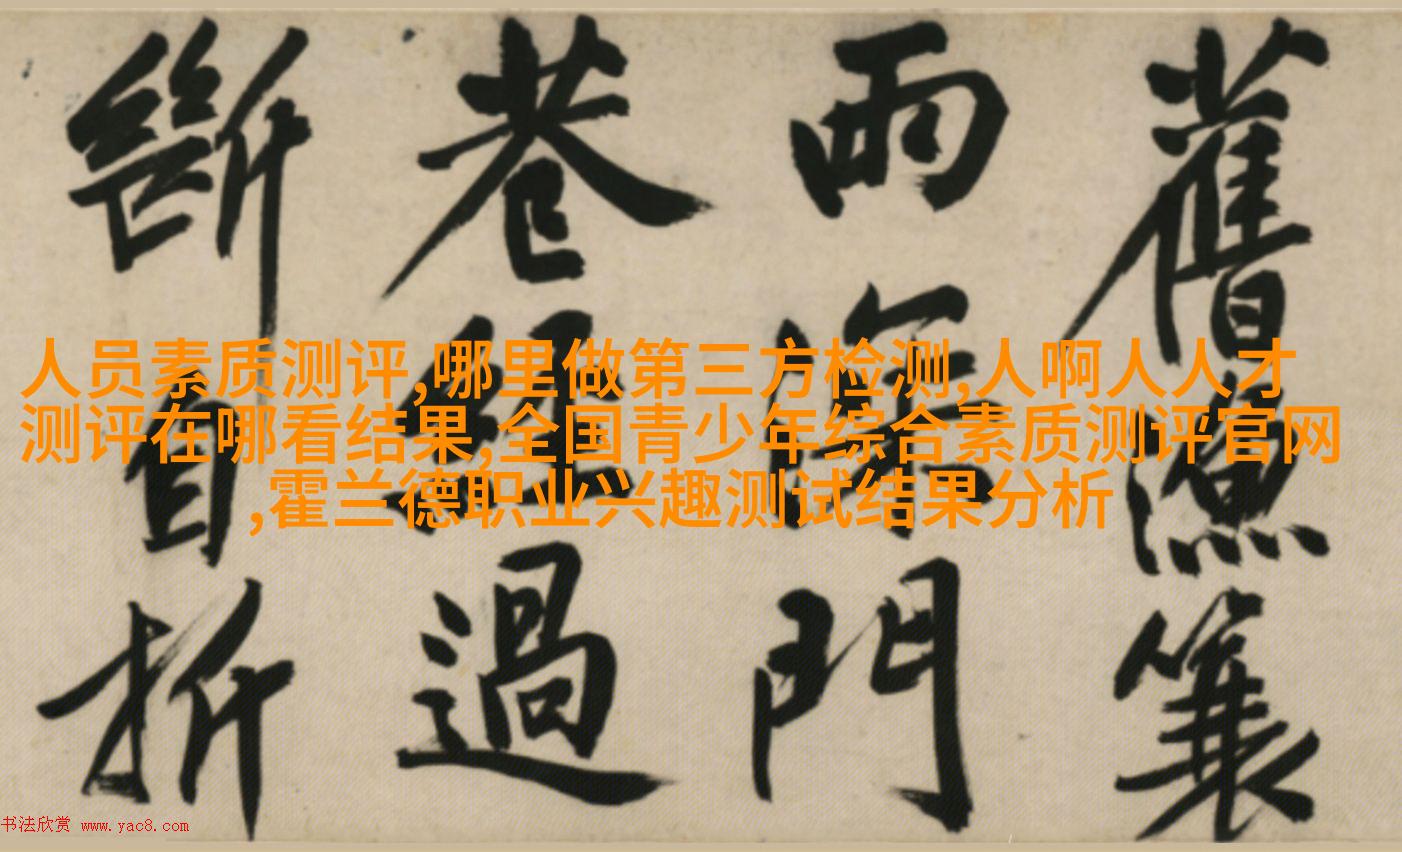 舊漁簑
雨深門
巷經過
斷自折
人员素质测评,哪里做第三方检测,人啊人人才
测评在哪看结果,全国青少年综合素质测评官网
,霍兰德职业兴趣测试结果分析
书法欣赏 www.yac8.com